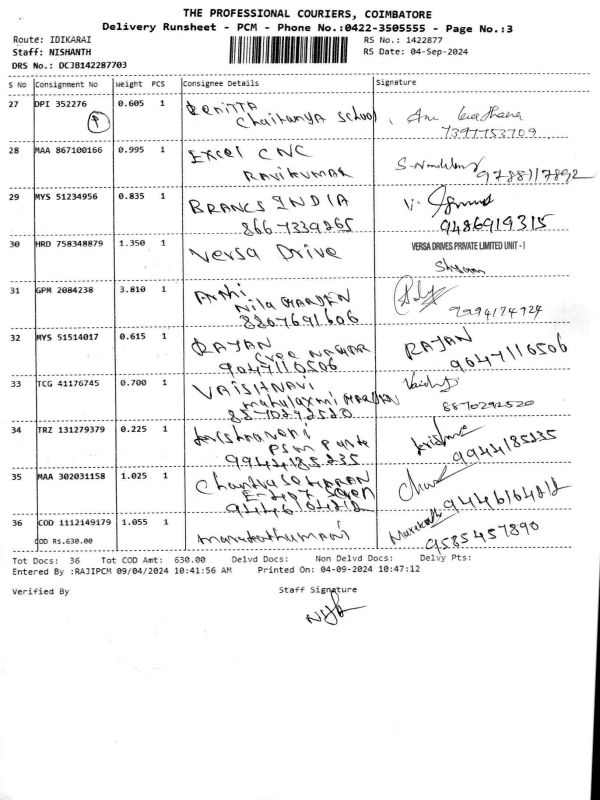 THE PROFESSIONAL COURIERS, COIMBATORE
Delivery Runsheet - PCM - Phone No.:0422-3505555 - Page No.:3
Route: IDIKARAI
RS No.: 1422877
Staff: NISHANTH
RS Date: 04-Sep-2024
DRS No.: DCJB142287703
S No Consignment No Weight PCS Consignee Details Signature
27 DPI 352276 0.605 1
Chaitanya School
7397753709
P
28 MAA 867100166 0.995 1 EXCEL CNC
RAVIKUMAR
9788117892
29 MYS 51234956 0.835 1 BRANCS INDIA
8667339265 9486919315
30 HRD 758348879 1.350 1 Versa Drive
VERSA DRIVES PRIVATE LIMITED UNIT - I
Shyam
31 GPM 2084238 3.810 1
Nila GARDEN
8807691606
9994174724
32 MYS 51514017 0.615 1 RAJAN RAJAN
NAGAR
9047110506 9047110506
33 TCG 41176745 0.700 1 VAISHNAVI
mahalaxmi GARDEN
8870292520 8870292520
34 TRZ 131279379 0.225 1 krishnaveni
PSM Park
9944185235 9944185235
35 MAA 302031158 1.025 1
9446164212 9446164212
36 COD 1112149179 1.055 1
COD RS.630.00
9585457890
Tot Docs: 36 Tot COD Amt: 630.00 Delvd Docs: Non Delvd Docs: Delvy Pts:
Entered By :RAJIPCM 09/04/2024 10:41:56 AM Printed On: 04-09-2024 10:47:12
Verified By Staff Signature